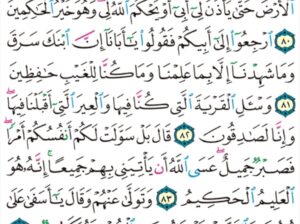 ٱلْأَرْضَ حَتَّىٰ يَأْذَنَ لِىٓ أَبِىٓ أَوْ يَحْكُمَ ٱللَّهُ لِى وَهُوَ خَيْرُ ٱلْحَٰكِمِينَ
٨٠ ٱرْجِعُوٓا۟ إِلَىٰٓ أَبِيكُمْ فَقُولُوا۟ يَٰٓأَبَانَآ إِنَّ ٱبْنَكَ سَرَقَ
وَمَا شَهِدْنَآ إِلَّا بِمَا عَلِمْنَا وَمَا كُنَّا لِلْغَيْبِ حَٰفِظِينَ
٨١ وَسْـَٔلِ ٱلْقَرْيَةَ ٱلَّتِى كُنَّا فِيهَا وَٱلْعِيرَ ٱلَّتِىٓ أَقْبَلْنَا فِيهَا
وَإِنَّا لَصَٰدِقُونَ ٨٢ قَالَ بَلْ سَوَّلَتْ لَكُمْ أَنفُسُكُمْ أَمْرًا
فَصَبْرٌ جَمِيلٌ عَسَى ٱللَّهُ أَن يَأْتِيَنِى بِهِمْ جَمِيعًا إِنَّهُۥ هُوَ
ٱلْعَلِيمُ ٱلْحَكِيمُ ٨٣ وَتَوَلَّىٰ عَنْهُمْ وَقَالَ يَٰٓأَسَفَىٰ عَلَىٰ